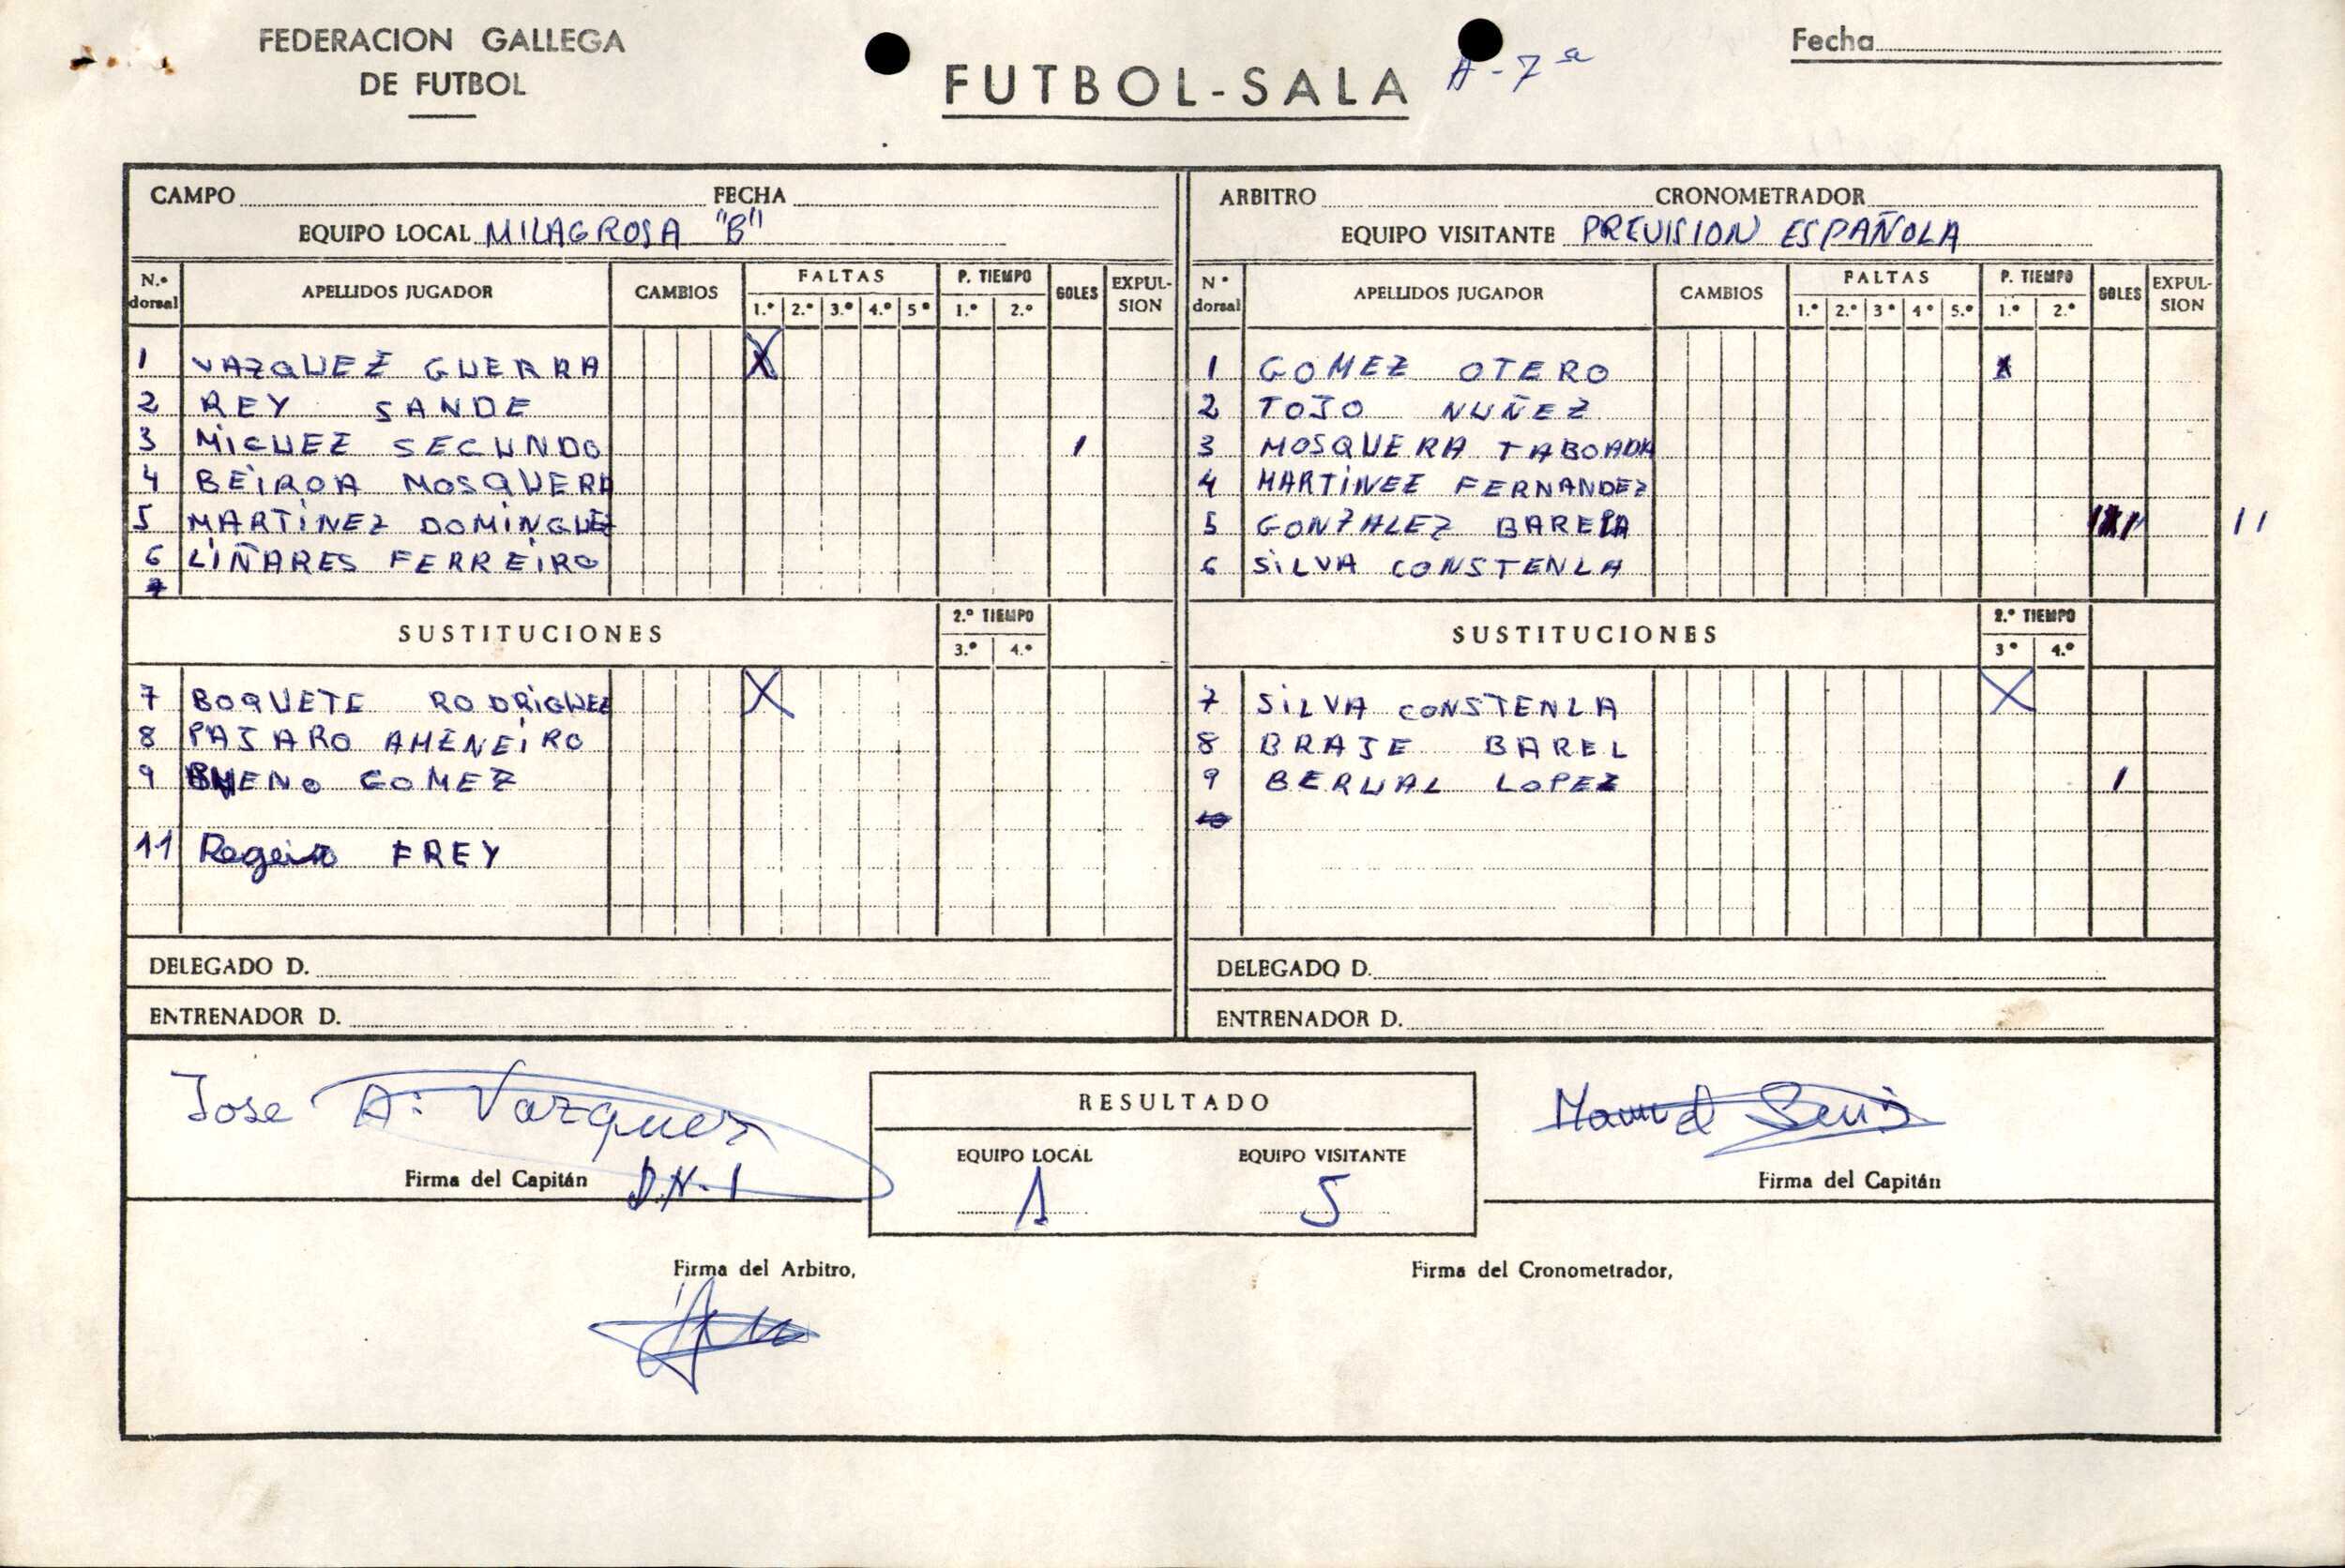 FEDERACION GALLEGA
DE FUTBOL
FUTBOL-SALA
A-7ª
Fecha
CAMPO FECHA
EQUIPO LOCAL MILAGROSA "B"
N.º dorsal APELLIDOS JUGADOR CAMBIOS FALTAS 1.º 2.º 3.º 4.º 5º P. TIEMPO 1.º 2.º GOLES EXPUL-SION
1 VAZQUEZ GUERRA X
2 REY SANDE
3 MIGUEZ SEGUNDO 1
4 BEIROA MOSQUERA
5 MARTINEZ DOMINGUEZ
6 LIÑARES FERREIRO
SUSTITUCIONES 2.º TIEMPO 3.º 4.º
7 BOQUETE RODRIGUEZ X
8 PAJARO AMENEIRO
9 BUENO GOMEZ
11 FREY
DELEGADO D.
ENTRENADOR D.
ARBITRO CRONOMETRADOR
EQUIPO VISITANTE PREVISION ESPAÑOLA
Nº dorsal APELLIDOS JUGADOR CAMBIOS FALTAS 1.º 2.º 3º 4º 5.º P. TIEMPO 1.º 2.º GOLES EXPUL-SION
1 GOMEZ OTERO X
2 TOJO NUÑEZ
3 MOSQUERA TABOADA
4 MARTINEZ FERNANDEZ
5 GONZALEZ BARELA 11
6 SILVA CONSTENLA
SUSTITUCIONES 2.º TIEMPO 3º 4.º
7 SILVA CONSTENLA X
8 BRAJE BAREL
9 BERNAL LOPEZ 1
DELEGADO D.
ENTRENADOR D.
Jose A. Vazquez
Firma del Capitán D.N.I
RESULTADO
EQUIPO LOCAL EQUIPO VISITANTE
1 5
Manuel
Firma del Capitán
Firma del Arbitro,
Firma del Cronometrador,